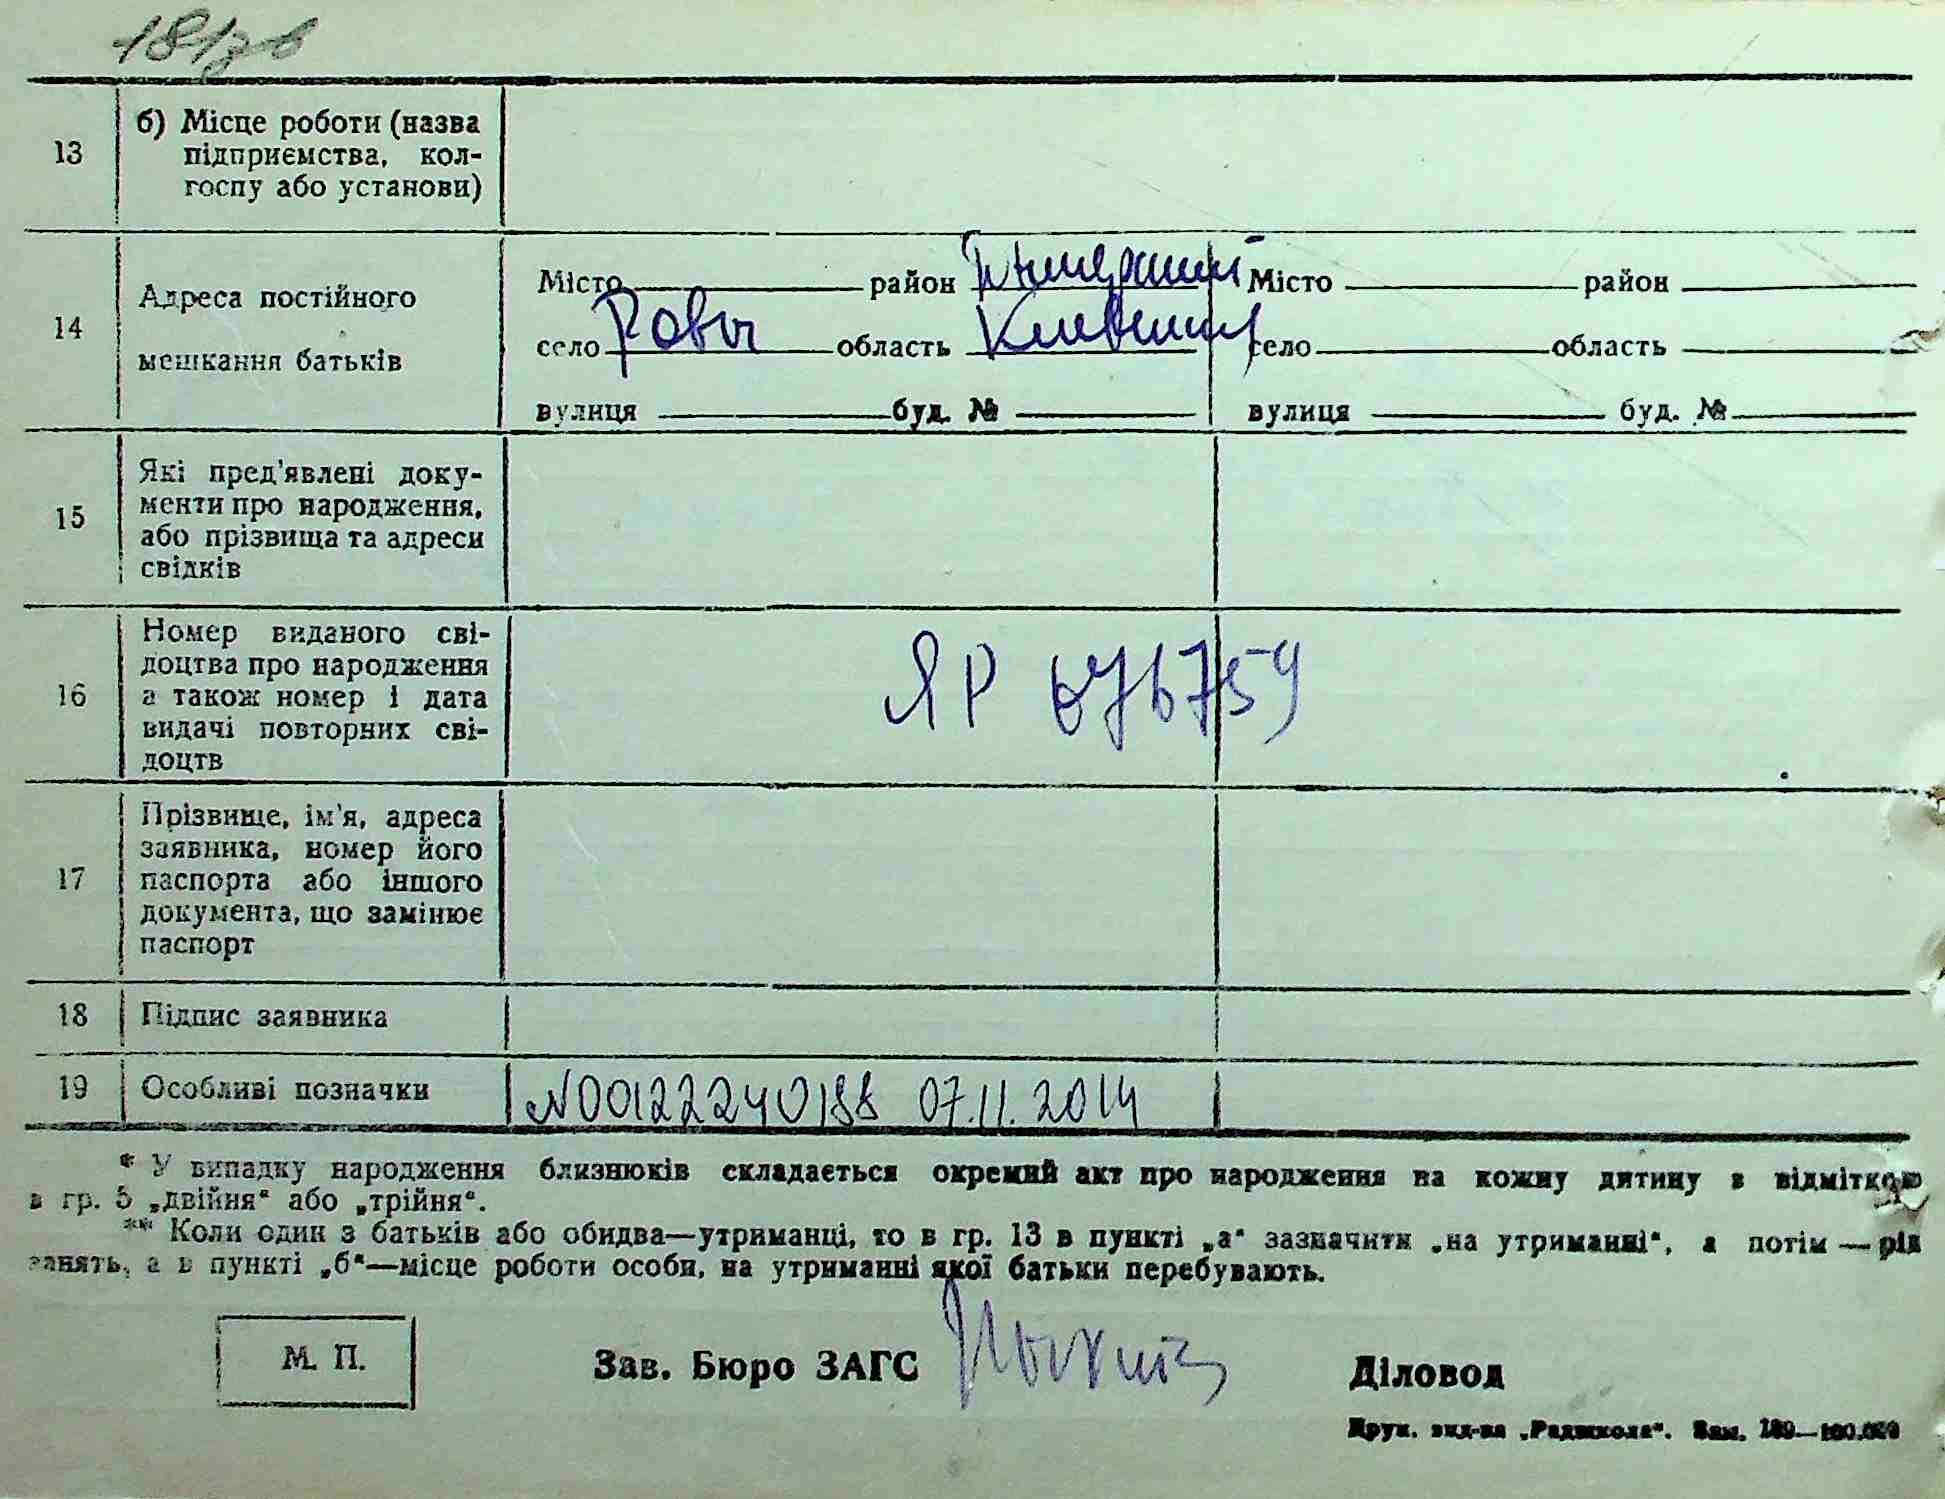 181зв
13
б) Місце роботи (назва
підприємства, кол-
госпу або установи)
14
Адреса постійного
мешкання батьків
Місто район
село Рови область Київська
вулиця буд. №
Місто район
село область
вулиця буд. №
15
Які пред'явлені доку-
менти про народження,
або прізвища та адреси
свідків
16
Номер виданого сві-
доцтва про народження
а також номер і дата
видачі повторних сві-
доцтв
ЯР 676759
17
Прізвище, ім'я, адреса
заявника, номер його
паспорта або іншого
документа, що замінює
паспорт
18
Підпис заявника
19
Особливі позначки
N00122240188 07.11.2014
* У випадку народження близнюків складається окремий акт про народження на кожну дитину з відміткою
в гр. 5 „двійня“ або „трійня“.
** Коли один з батьків або обидва—утриманці, то в гр. 13 в пункті „а“ зазначити „на утриманні“, а потім — рід
занять, а в пункті „б“—місце роботи особи, на утриманні якої батьки перебувають.
М. П.
Зав. Бюро ЗАГС
Діловод
Друк. вид-ва „Радшкола“. Зам. 189—100.000